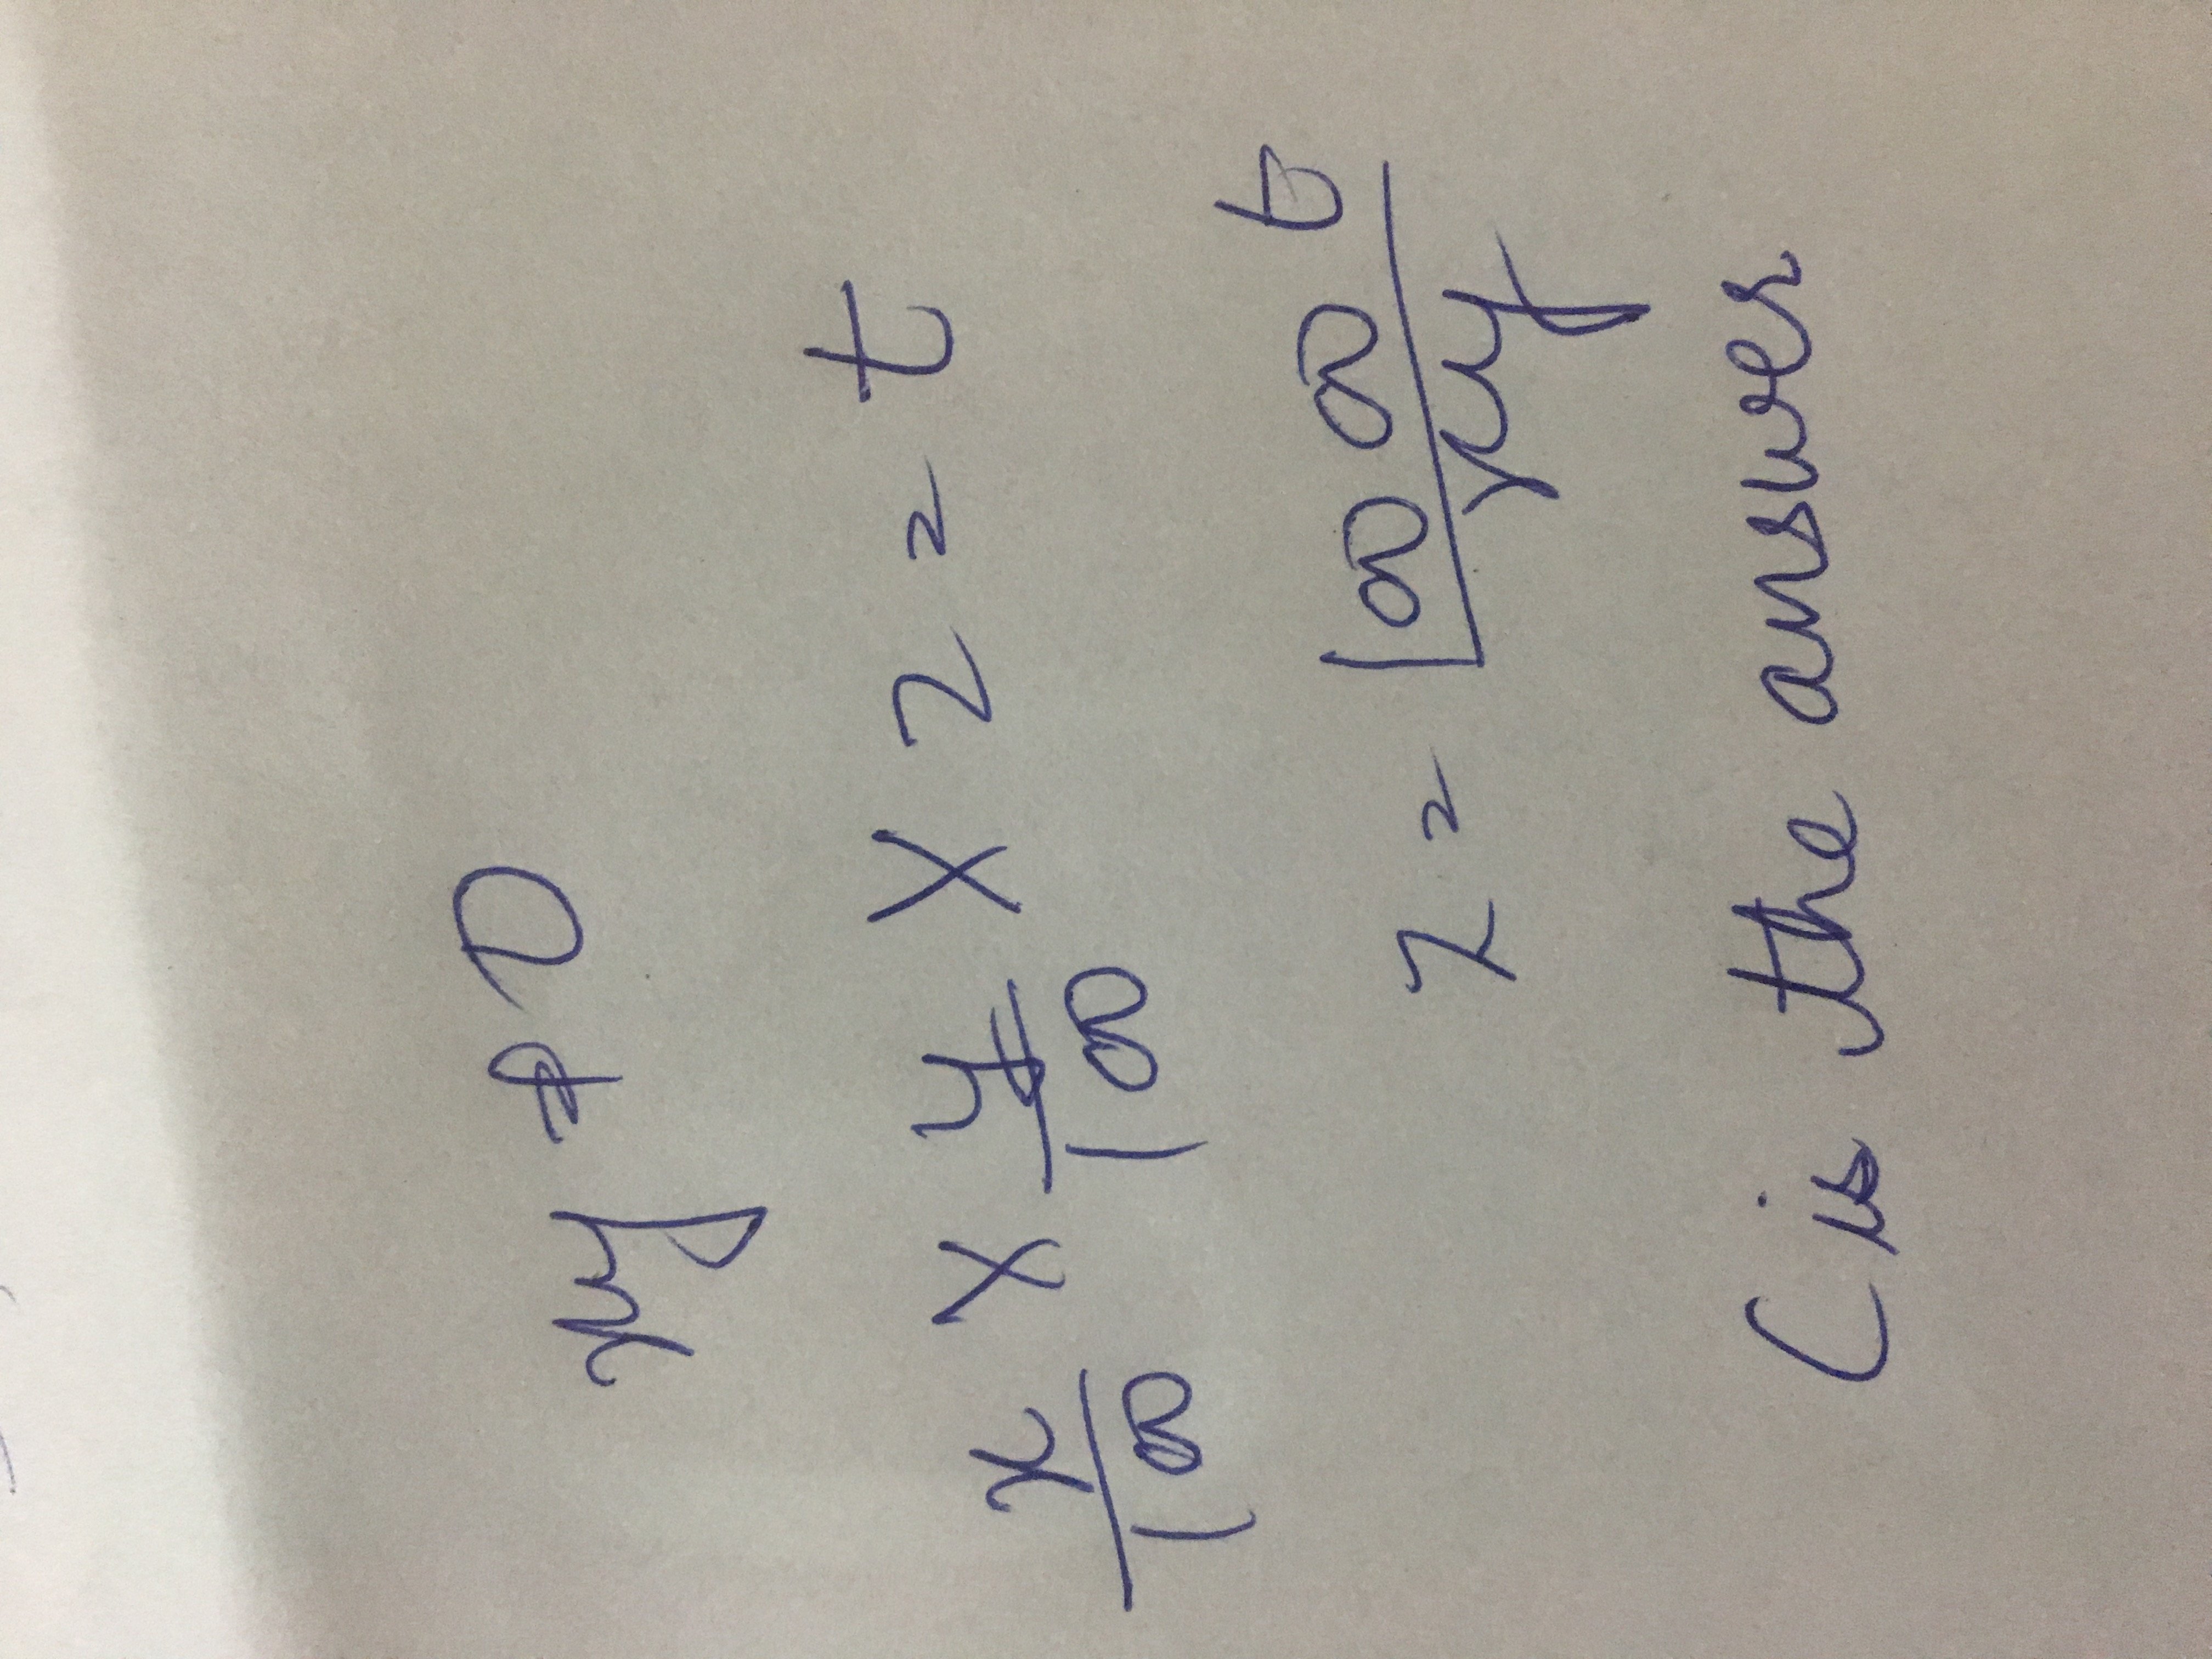 xy ≠ 0
x/100 × y/100 × z = t
z = 10000t/xy
C is the answer